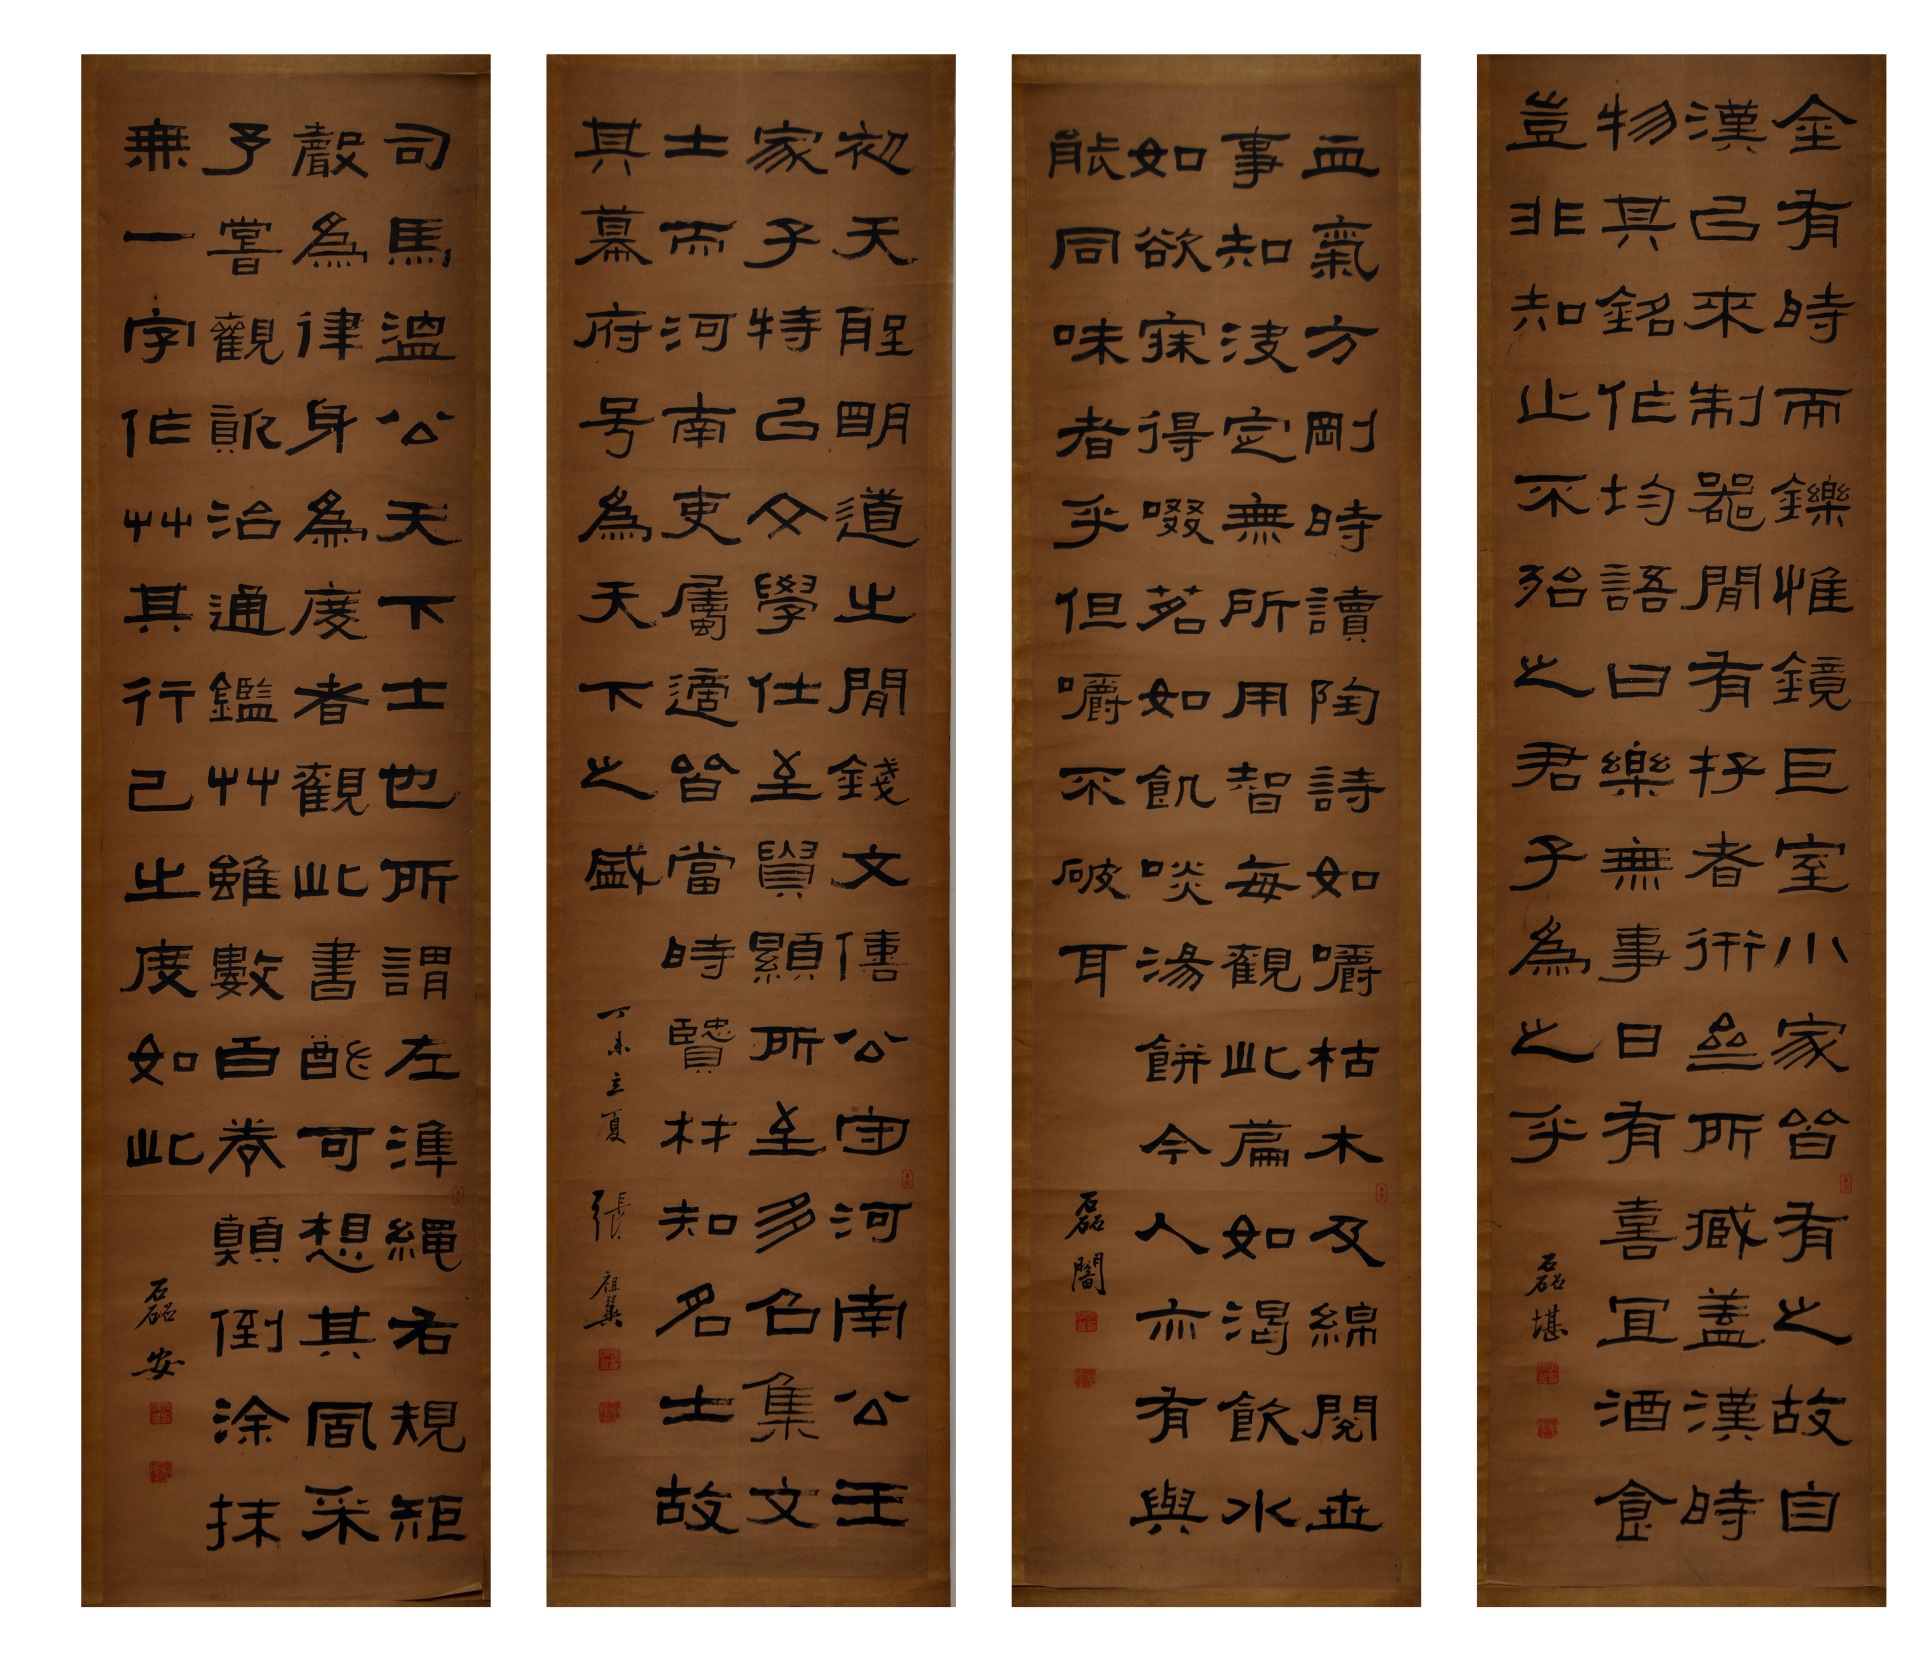 金有時而鑠惟鏡巨室小家皆有之故自
漢㠯來制器閒有好者衎所臧盖漢時
物其銘作均語曰樂無事日有喜宜酒食
豈非知止不殆之君子為之乎
磊堪
血氣方剛時讀陶詩如嚼枯木及綿閱世
事知决定無所用智每觀此篇如渴飲水
如欲寐得啜茗如飢啖湯餅今人亦有與
能同味者乎但嚼不破耳
磊闇
初天聖明道之閒錢文僖公守河南公王
家子特㠯文學仕至貴顯所至多召集文
士而河南吏屬適皆當時賢材知名士故
其幕府号為天下之盛
丁未立夏 張祖翼
司馬溫公天下士也所謂左準繩右規矩
聲為律身為度者觀此書酷可想其風采
予嘗觀資治通鑑艸雖數百卷顛倒涂抹
無一字作艸其行己之度如此
磊安